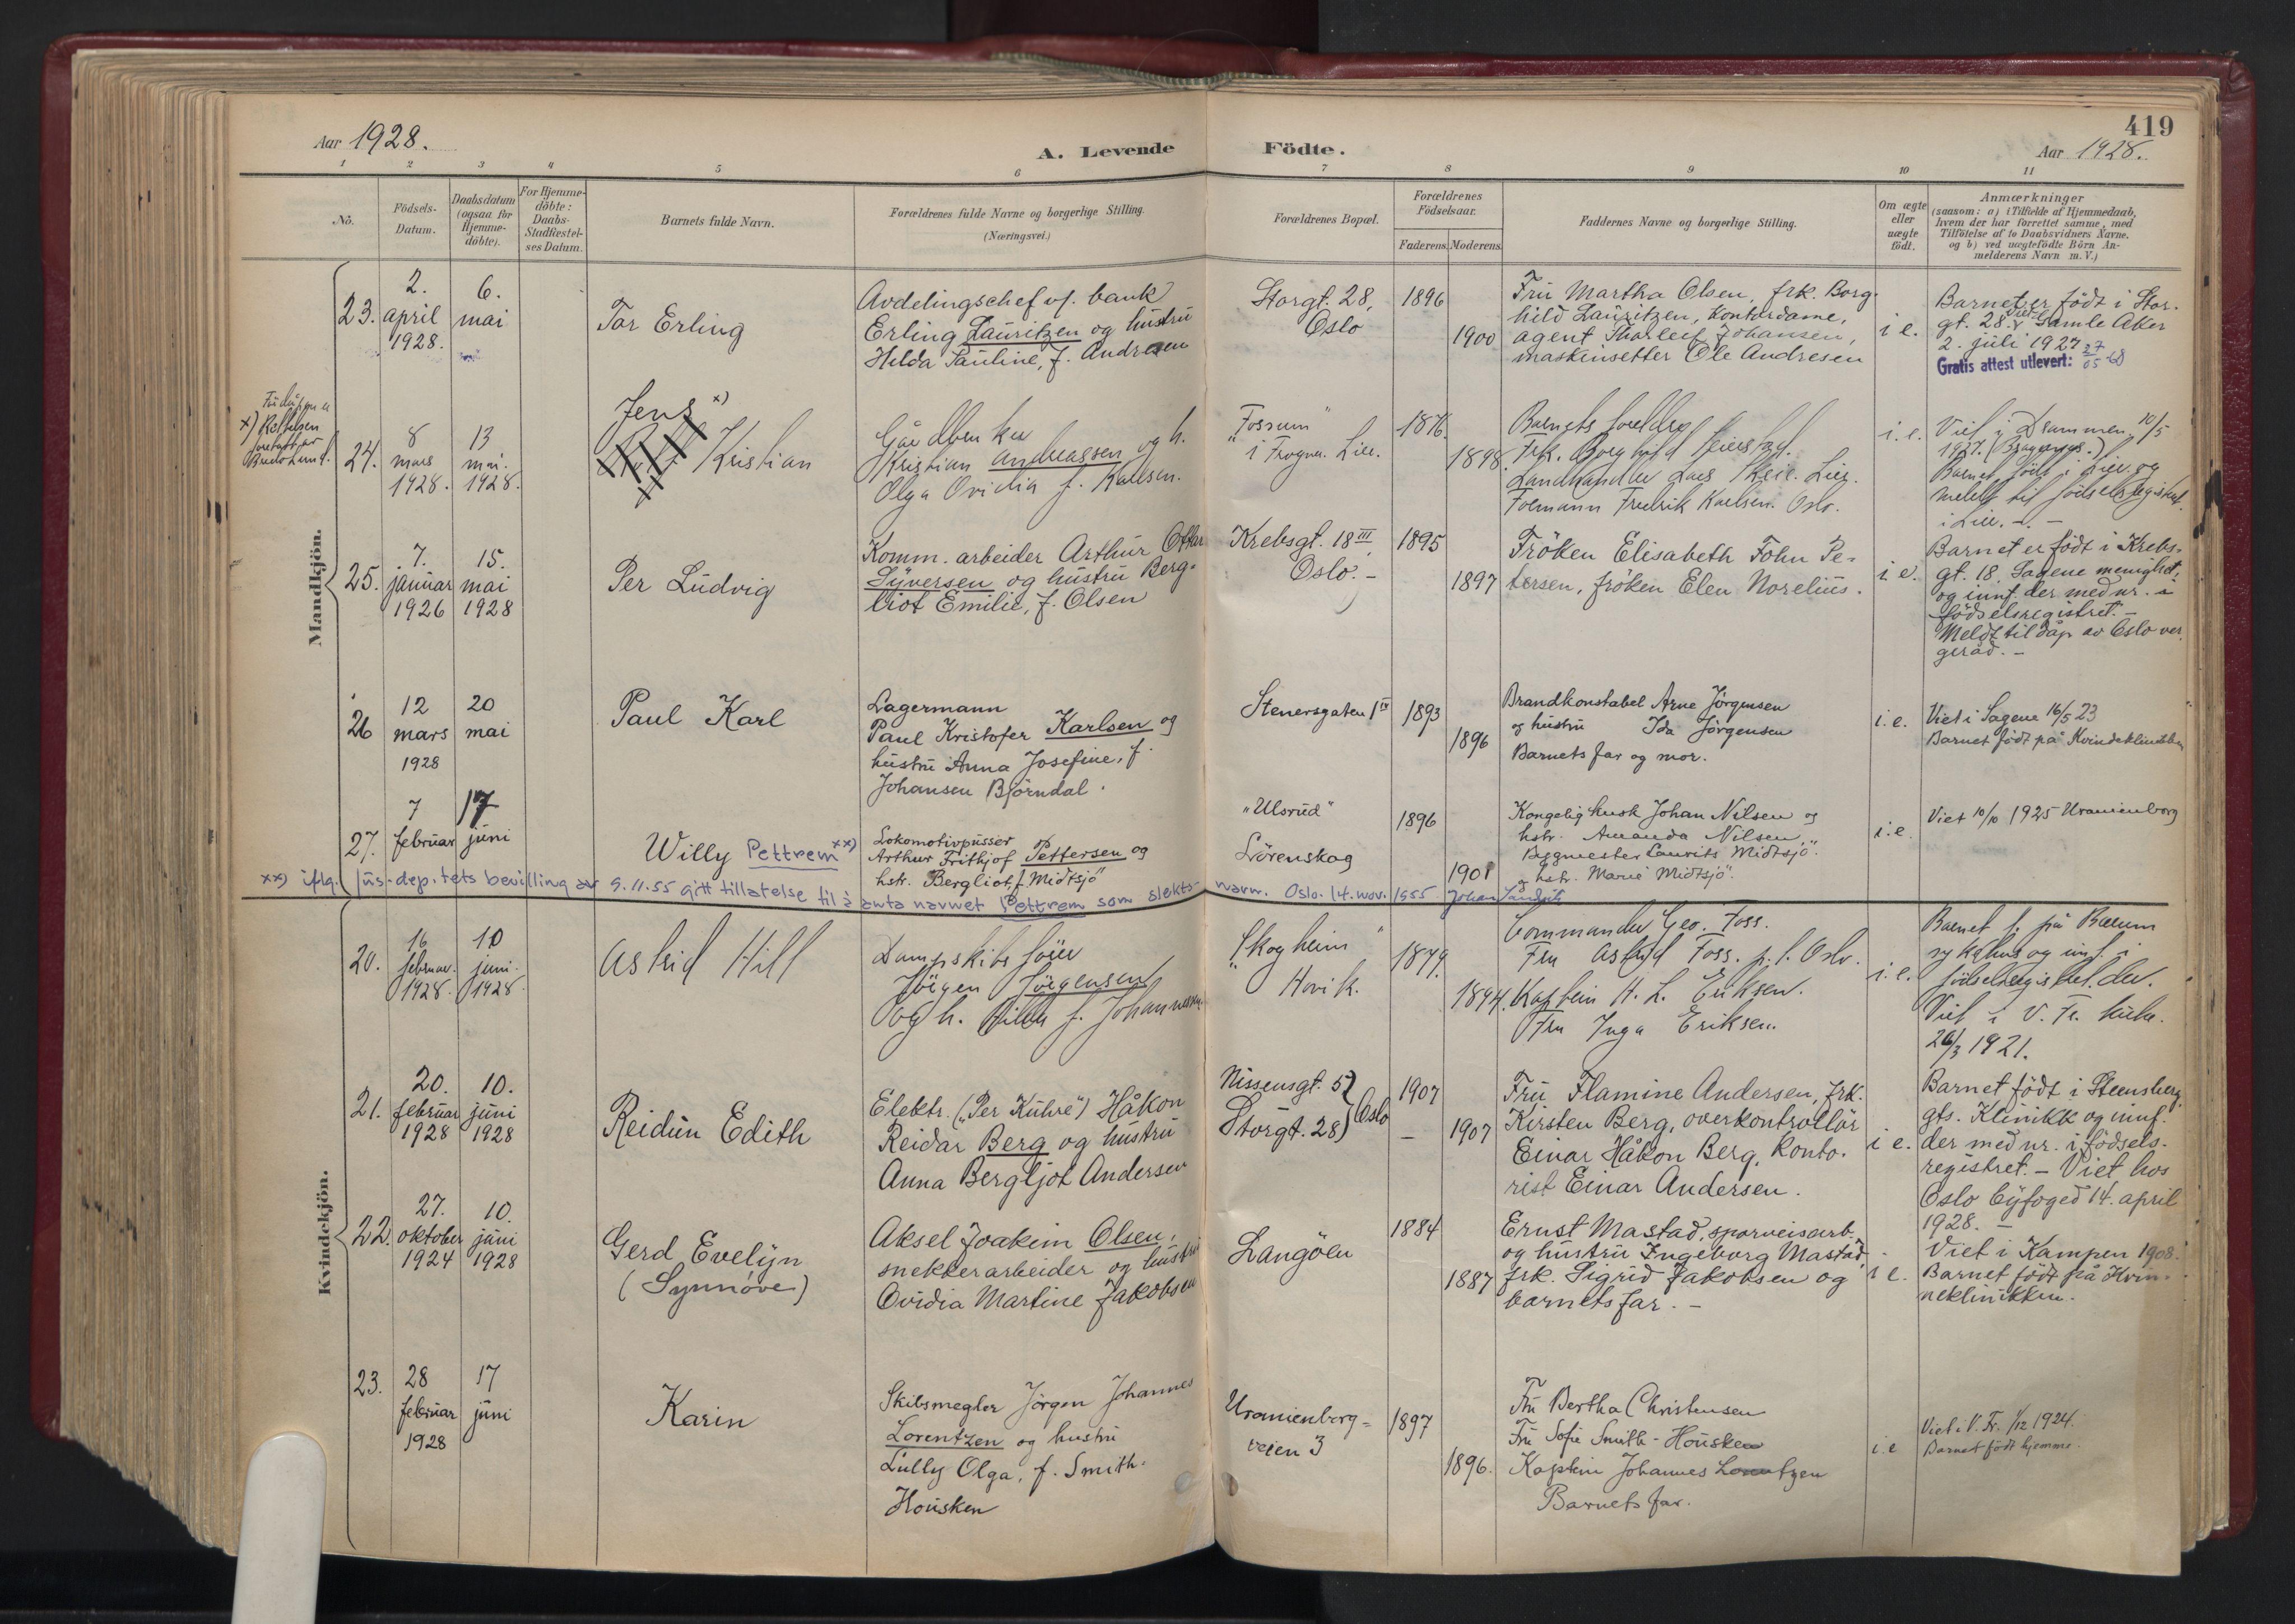 419
Aar 1928.
A. Levende Födte.
Aar 1928.
1 2 3 4 5 6 7 8 9 10 11
No.
Födsels-
Datum.
Daabsdatum
(ogsaa for
Hjemme-
döbte).
For Hjemme-
döbte:
Daabs-
Stadfæstel-
ses Datum.
Barnets fulde Navn.
Forældrenes fulde Navne og borgerlige Stilling.
(Næringsvei.)
Forældrenes Bopæl.
Forældrenes
Födselsaar.
Faderens. Moderens.
Faddernes Navne og borgerlige Stilling.
Om ægte
eller
uægte
födt.
Anmærkninger
(saasom: a) i Tilfælde af Hjemmedaab,
hvem der har forrettet samme, med
Tilföielse af to Daabsvidners Navne.
og b) ved uægtefödte Börn An-
melderens Navn m. V.)
Mandkjön.
23.
2.
april
1928.
6.
mai
Tor Erling
Avdelingschef v/. bank
Erling Lauritzen og hustru
Hilda Pauline, f. Andresen
Storgt. 28,
Oslo
1896
1900
Fru Martha Olsen, frk. Borg-
hild Lauritzen, kontordame,
agent Thorleif Johansen,
maskinsetter Ole Andresen
i e.
Barnet er födt i Stor-
gt. 28. Viet Gamle Aker
2. juli 1927
Gratis attest utlevert: 27/05-68
x) Rettelsen
24.
8
mars
1928.
13
mai.
1928.
Jens x)
Kristian
Kristian Andreassen og h.
Olga Ovidia f. Karlsen.
"Fossum"
i Frogner. Lier.
1876.
1898.
Barnets foreldre
Frk. Borghild
Landhandler Lars Lier.
Formann Fredrik Karlsen. Oslo.
i. e.
Viet i Drammen 10/5
1927. (Bragernes.)
Barnet född i Lier og
meldt til födselsregistret
i Lier. - -
25.
7.
januar
1926
15.
mai
1928
Per Ludvig
Komm. arbeider Arthur Ottar
Syversen og hustru Berg-
liot Emilie, f. Olsen
Krebsgt. 18 III,
Oslo. -
1895
1897
Fröken Elisabeth Föhn Pe-
tersen, fröken Elen Norelius.
i e.
Barnet er födt i Krebs-
gt. 18, Sagene menighet,
og innf. der med nr. - i
födselsregistret. -
Meldt til dåp av Oslo ver-
geråd. -
26
12
mars
1928
20
mai
Paul Karl
Lagermann
Paul Kristofer Karlsen og
hustru Anna Josefine, f.
Johansen Björndal.
Stenersgaten 1 IV
1893
1896
Brandkonstabel Arne Jörgensen
og hustru Ida Jörgensen
Barnets far og mor.
i. e.
Viet i Sagene 16/5 23
Barnet födt på Kvindeklinikken
27.
7
februar
17
juni
Willy Pettrem xx)
Lokomotivpusser
Arthur Frithjof Pettersen og
hstr. Bergliot, f. Midtsjö
"Ulsrud"
Lörenskog
1896
1901
Kongelig husk Johan Nilsen og
hstr. Amanda Nilsen,
Bygmester Laurits Midtsjö.
og hstr. Marie Midtsjö.
i. e.
Viet 10/10 1925 Uranienborg
xx) iflg. Jus.-dep.tets bevilling av 9.11.55 gitt tillatelse til å anta navnet Pettrem som slekts- navn. Oslo. 14. nov. 1955
Kvindekjön.
20.
16
februar.
1928.
10
juni.
1928.
Astrid Hill
Dampskibsförer
Jörgen Jörgensen
og h. f. Johannessen
"Skogheim"
Hovik.
1879.
1894.
Commander Geo. Foss.
Fru Astrid Foss. p. t. Oslo.
Kaptein H. L. Eriksen.
Fru Inga Eriksen.
i. e.
Barnet f. på Bærum
sykehus og innf. i
födselsregistret. der.
Viet i V. Fr. kirke.
26/3 1921.
21.
20.
februar
1928
10.
juni
1928
Reidun Edith
Elektr. ("Per Kuhre") Håkon
Reidar Berg og hustru
Anna Bergljot Andersen
Nissensgt. 5
Storgt. 28 } Oslo
1907
- 1907
Fru Flamine Andersen, frk.
Kirsten Berg, overkontrollör
Einar Håkon Berg, konto-
rist Einar Andersen.
i e.
Barnet födt i Steensberg
gts. Klinikk og innf.
der med nr. i födsels-
registret. - Viet hos
Oslo byfoged 14. april
1928. -
22.
27.
oktober
1924
10.
juni
1928
Gerd Evelyn
(Synnöve)
Aksel Joakim Olsen,
snekkerarbeider og hustru
Ovidia Martine Jakobsen
Langöen
1884
1887
Ernst Mastad, sporveisarb.
og hustru Ingeborg Mastad,
frk. Sigrid Jakobsen og
barnets far. -
i e.
Viet i Kampen 1908.
Barnet födt på Kvin-
neklinikken.
23.
28
februar
1928
17
juni
Karin
Skibsmegler Jörgen Johannes
Lorentzen og hustru
Lully Olga, f. Smith-
Housken
Uranienborg-
veien 3
1897
1896.
Fru Bertha Christensen
Fru Sofie Smith-Housken
Kaptein Johannes Lorentzen
Barnets far.
i. e
Viet i V. Fr. 1/12 1924.
Barnet födt hjemme.